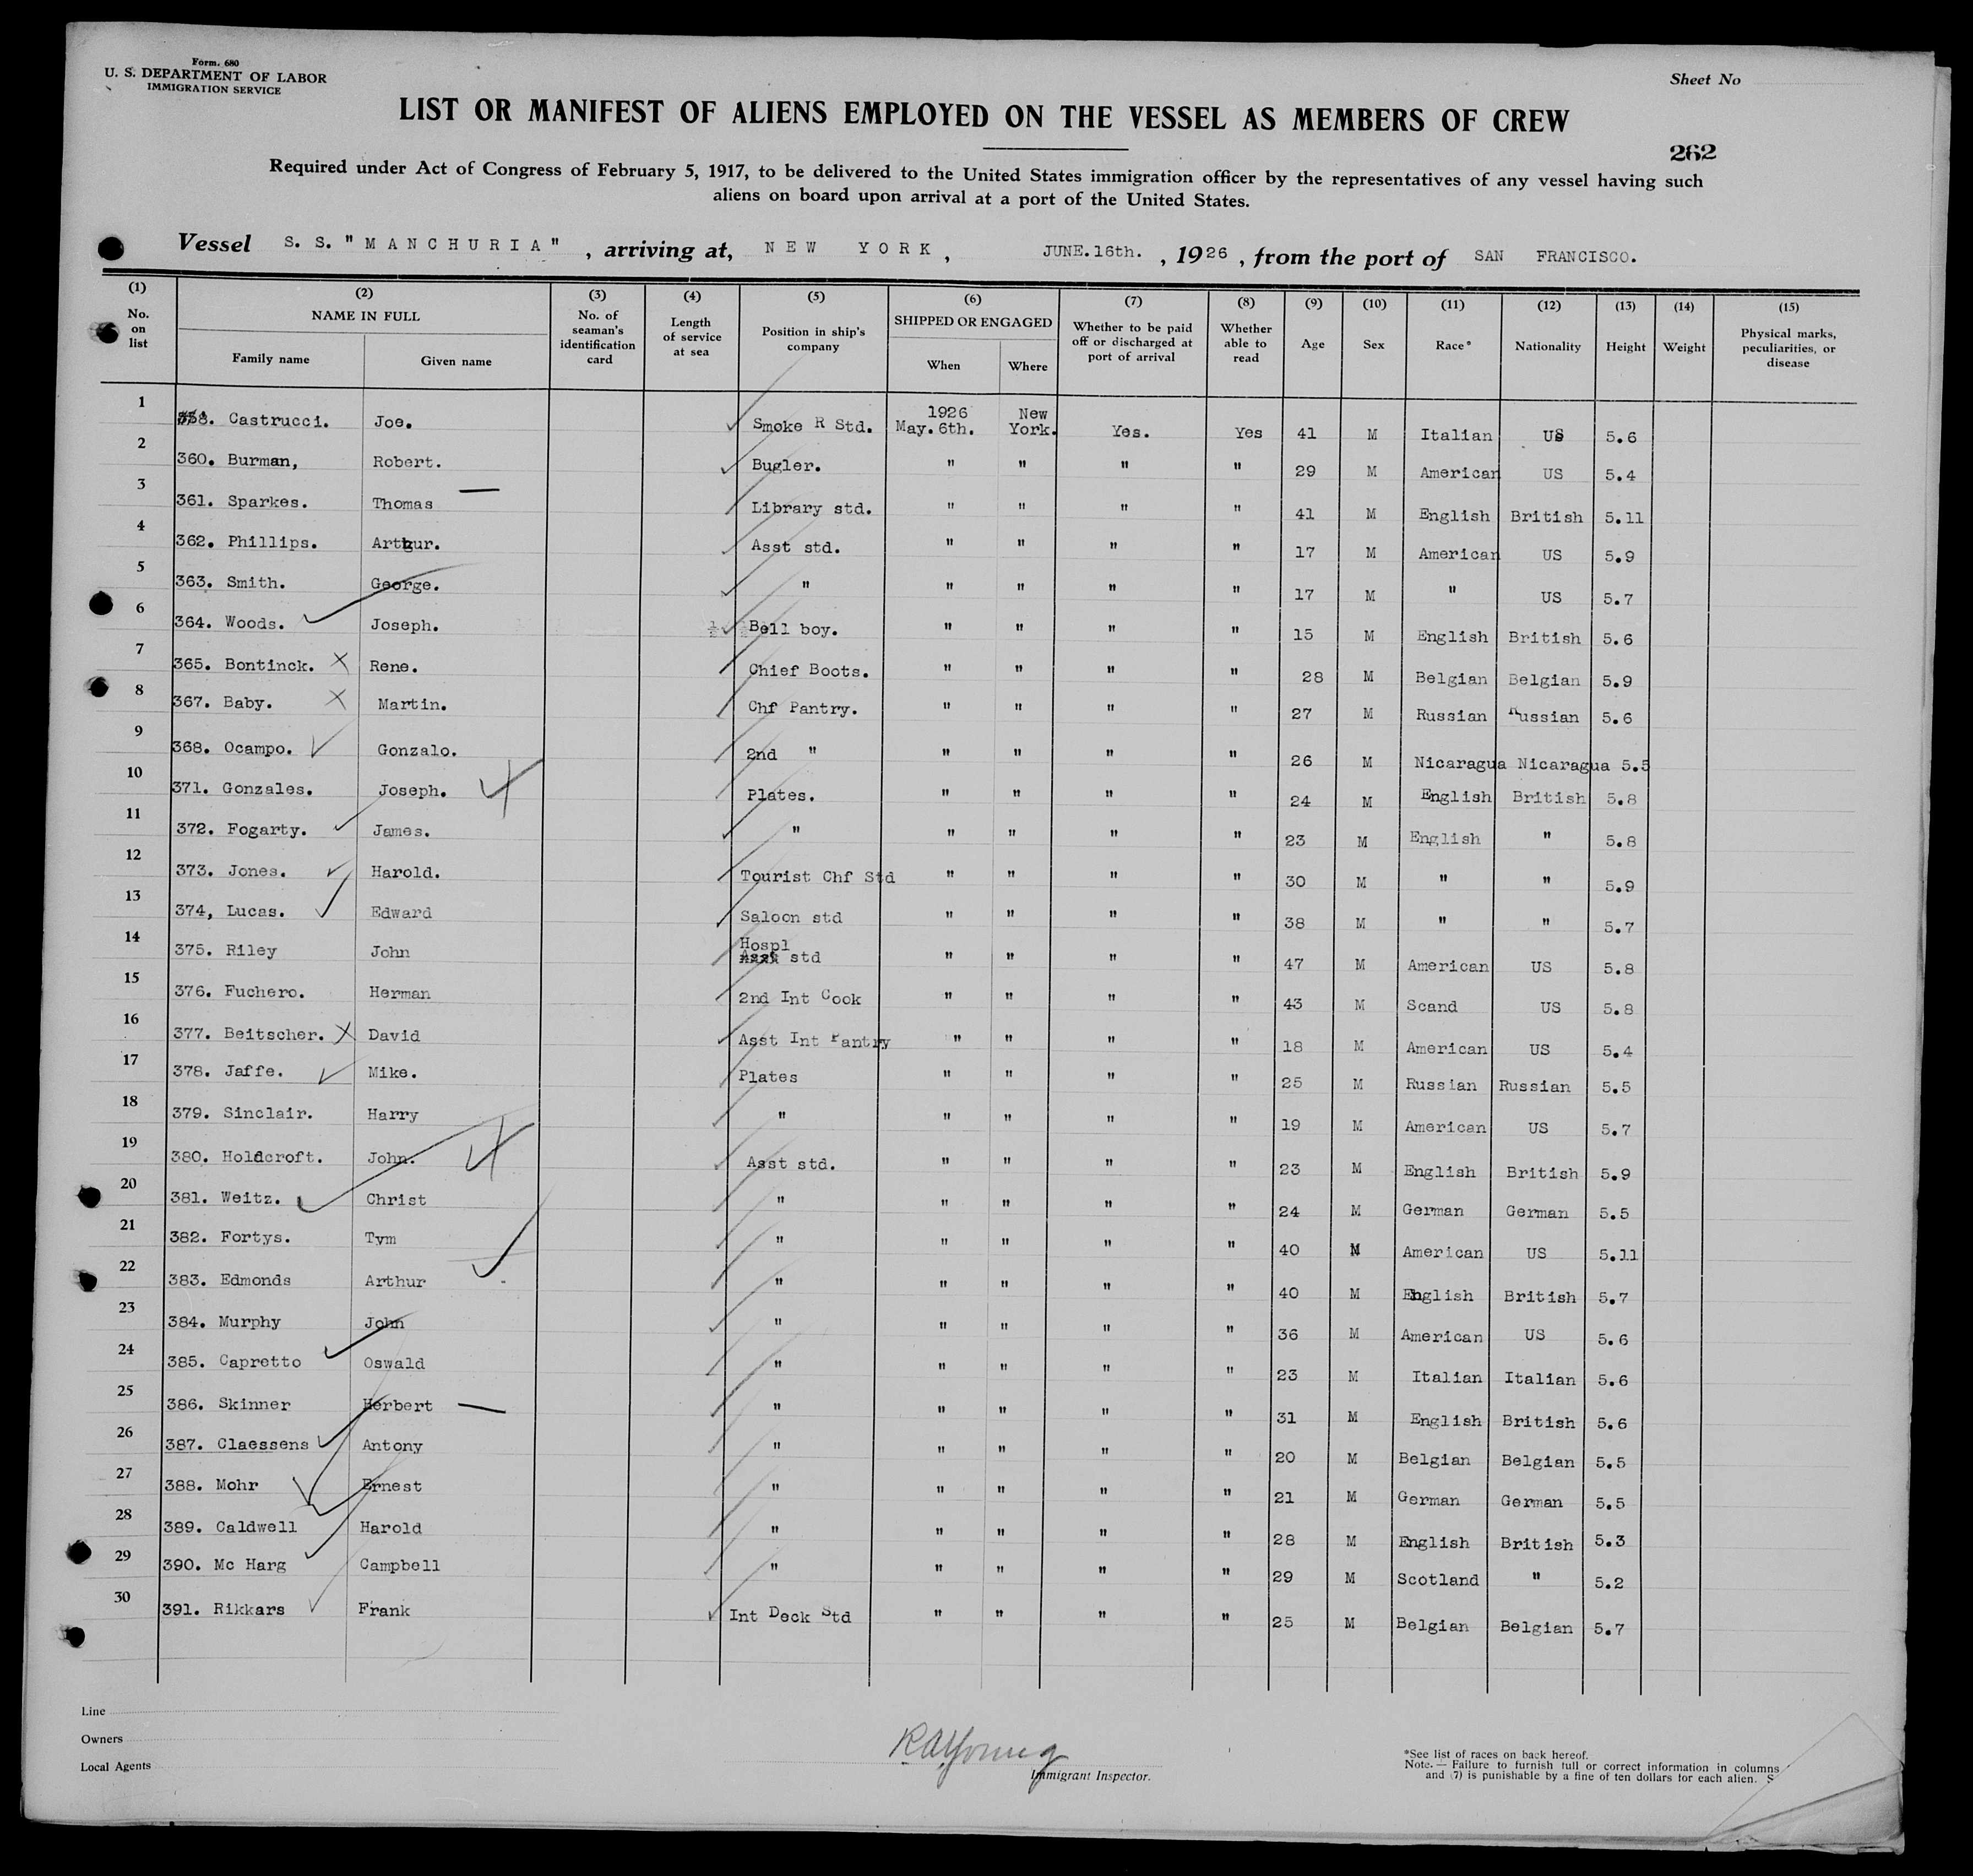 Form. 680
U. S. DEPARTMENT OF LABOR
IMMIGRATION SERVICE
Sheet No
LIST OR MANIFEST OF ALIENS EMPLOYED ON THE VESSEL AS MEMBERS OF CREW
262
Required under Act of Congress of February 5, 1917, to be delivered to the United States immigration officer by the representatives of any vessel having such
aliens on board upon arrival at a port of the United States.
Vessel S. S. "MANCHURIA" , arriving at, NEW YORK, JUNE.16th. , 1926 , from the port of SAN FRANCISCO.
(1) (2) (3) (4) (5) (6) (7) (8) (9) (10) (11) (12) (13) (14) (15)
No. on list NAME IN FULL Family name Given name No. of seaman's identification card Length of service at sea Position in ship's company SHIPPED OR ENGAGED When Where Whether to be paid off or discharged at port of arrival Whether able to read Age Sex Race* Nationality Height Weight Physical marks, peculiarities, or disease
1 358. Castrucci. Joe. Smoke R Std. 1926 May.6th. New York. Yes. Yes 41 M Italian US 5.6
2 360. Burman, Robert. Bugler. " " " " 29 M American US 5.4
3 361. Sparkes. Thomas Library std. " " " " 41 M English British 5.11
4 362. Phillips. Arthur. Asst std. " " " " 17 M American US 5.9
5 363. Smith. George. " " " " " 17 M " US 5.7
6 364. Woods. Joseph. Bell boy. " " " " 15 M English British 5.6
7 365. Bontinck. Rene. Chief Boots. " " " " 28 M Belgian Belgian 5.9
8 367. Baby. Martin. Chf Pantry. " " " " 27 M Russian Russian 5.6
9 368. Ocampo. Gonzalo. 2nd " " " " " 26 M Nicaragua Nicaragua 5.5
10 371. Gonzales. Joseph. Plates. " " " " 24 M English British 5.8
11 372. Fogarty. James. " " " " " 23 M English " 5.8
12 373. Jones. Harold. Tourist Chf Std " " " " 30 M " " 5.9
13 374, Lucas. Edward Saloon std " " " " 38 M " " 5.7
14 375. Riley John Hospl std " " " " 47 M American US 5.8
15 376. Fuchero. Herman 2nd Int Cook " " " " 43 M Scand US 5.8
16 377. Beitscher. David Asst Int Pantry " " " " 18 M American US 5.4
17 378. Jaffe. Mike. Plates " " " " 25 M Russian Russian 5.5
18 379. Sinclair. Harry " " " " " 19 M American US 5.7
19 380. Holdcroft. John. Asst std. " " " " 23 M English British 5.9
20 381. Weitz. Christ " " " " " 24 M German German 5.5
21 382. Fortys. Tym " " " " " 40 M American US 5.11
22 383. Edmonds Arthur " " " " " 40 M English British 5.7
23 384. Murphy John " " " " " 36 M American US 5.6
24 385. Capretto Oswald " " " " " 23 M Italian Italian 5.6
25 386. Skinner Herbert " " " " " 31 M English British 5.6
26 387. Claessens Antony " " " " " 20 M Belgian Belgian 5.5
27 388. Mohr Ernest " " " " " 21 M German German 5.5
28 389. Caldwell Harold " " " " " 28 M English British 5.3
29 390. Mc Harg Campbell " " " " " 29 M Scotland " 5.2
30 391. Rikkars Frank Int Deck Std " " " " 25 M Belgian Belgian 5.7
Line
Owners
Local Agents
R A Young
Immigrant Inspector.
*See list of races on back hereof.
Note.— Failure to furnish full or correct information in columns
and (7) is punishable by a fine of ten dollars for each alien. S